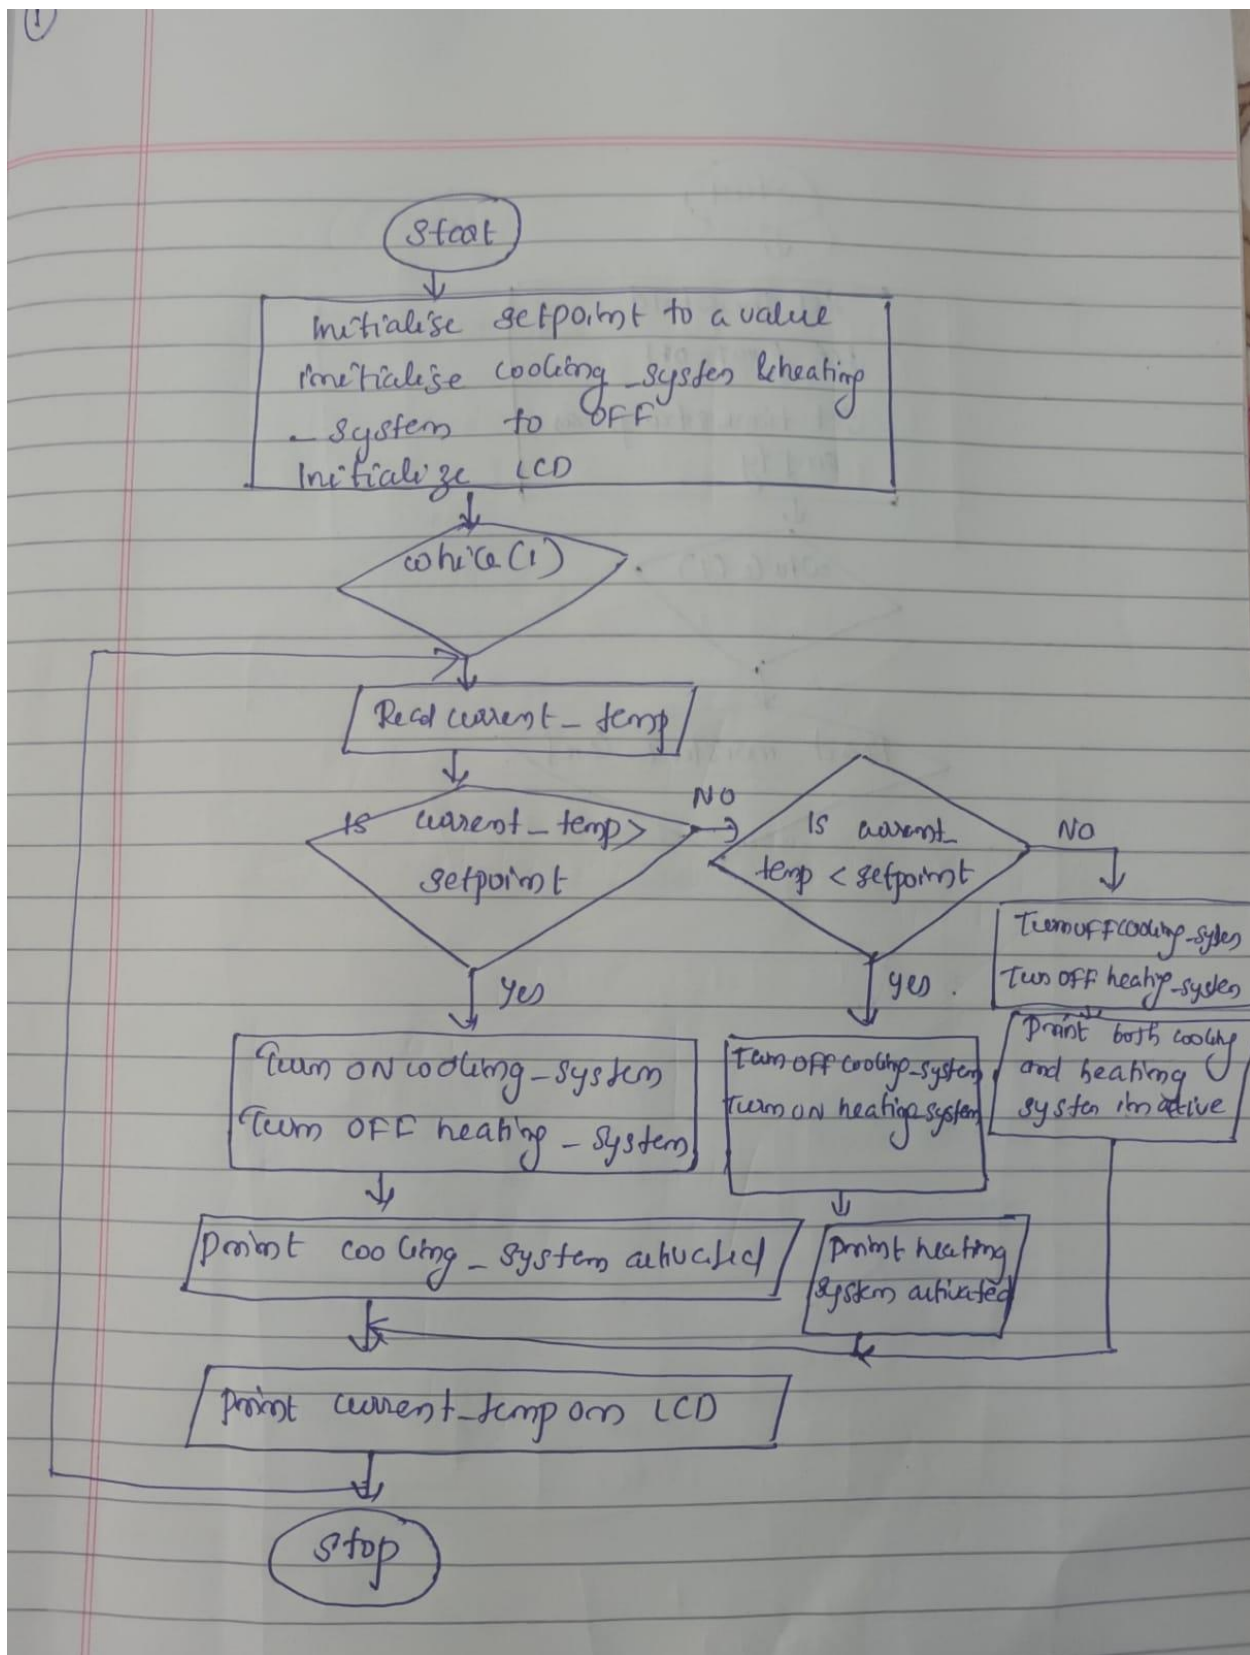 1
Start
Initialise setpoint to a value
initialise cooling_system & heating
_ system to OFF
Initialize LCD
while(1)
Read current_temp
Is current_temp>
setpoint
NO
Is current_
temp < setpoint
NO
Turn OFF cooling_system
Turn OFF heating_system
Yes
yes.
Print both cooling
and heating
system inactive
Turn ON cooling_system
Turn OFF heating_system
Turn OFF cooling_system
Turn ON heating_system
Print cooling_system activated
Print heating
system activated
Print current_temp on LCD
Stop